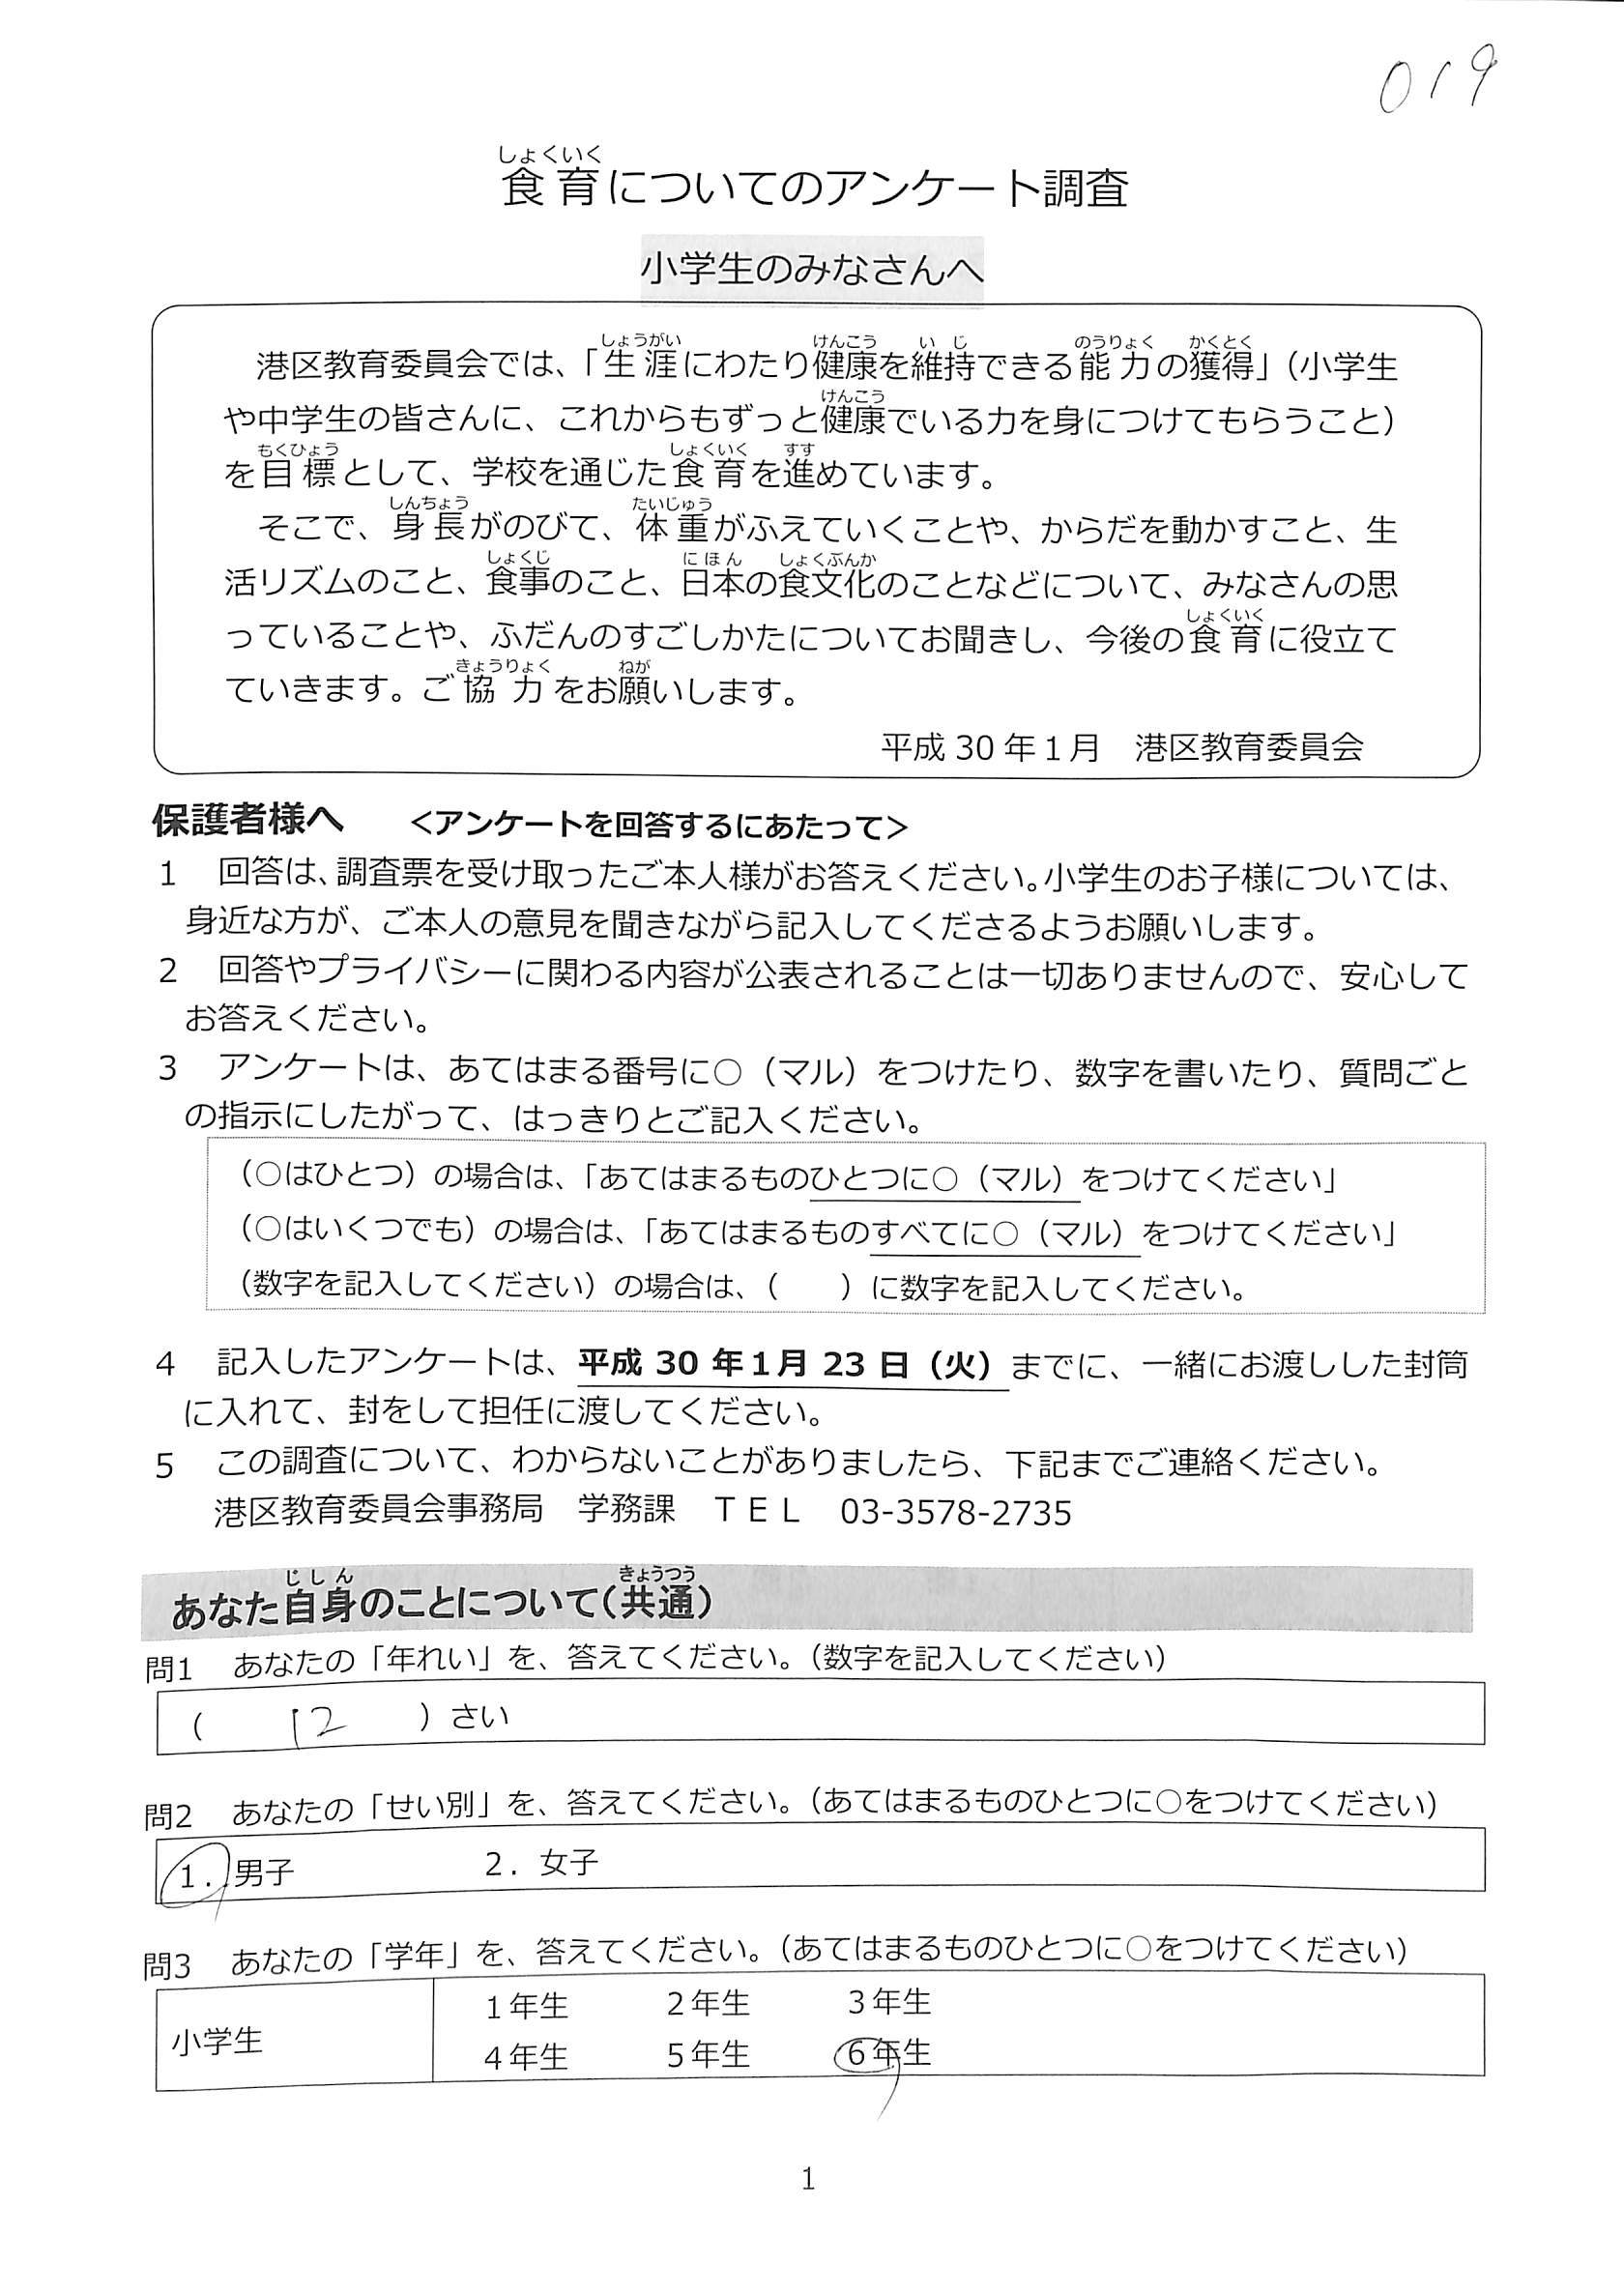 019
食育についてのアンケート調査
小学生のみなさんへ
港区教育委員会では、「生涯にわたり健康を維持できる能力の獲得」（小学生
や中学生の皆さんに、これからもずっと健康でいる力を身につけてもらうこと）
を目標として、学校を通じた食育を進めています。
そこで、身長がのびて、体重がふえていくことや、からだを動かすこと、生
活リズムのこと、食事のこと、日本の食文化のことなどについて、みなさんの思
っていることや、ふだんのすごしかたについてお聞きし、今後の食育に役立て
ていきます。ご協力をお願いします。
平成 30 年 1 月　港区教育委員会
保護者様へ　＜アンケートを回答するにあたって＞
1　回答は、調査票を受け取ったご本人様がお答えください。小学生のお子様については、
身近な方が、ご本人の意見を聞きながら記入してくださるようお願いします。
2　回答やプライバシーに関わる内容が公表されることは一切ありませんので、安心して
お答えください。
3　アンケートは、あてはまる番号に○（マル）をつけたり、数字を書いたり、質問ごと
の指示にしたがって、はっきりとご記入ください。
（○はひとつ）の場合は、「あてはまるものひとつに○（マル）をつけてください」
（○はいくつでも）の場合は、「あてはまるものすべてに○（マル）をつけてください」
（数字を記入してください）の場合は、（　　）に数字を記入してください。
4　記入したアンケートは、平成 30 年 1 月 23 日（火）までに、一緒にお渡しした封筒
に入れて、封をして担任に渡してください。
5　この調査について、わからないことがありましたら、下記までご連絡ください。
港区教育委員会事務局　学務課　ＴＥＬ　03-3578-2735
あなた自身のことについて（共通）
問1　あなたの「年れい」を、答えてください。（数字を記入してください）
（　12　）さい
問2　あなたの「せい別」を、答えてください。（あてはまるものひとつに○をつけてください）
1．男子　　2．女子
問3　あなたの「学年」を、答えてください。（あてはまるものひとつに○をつけてください）
小学生
1年生　2年生　3年生
4年生　5年生　6年生
1